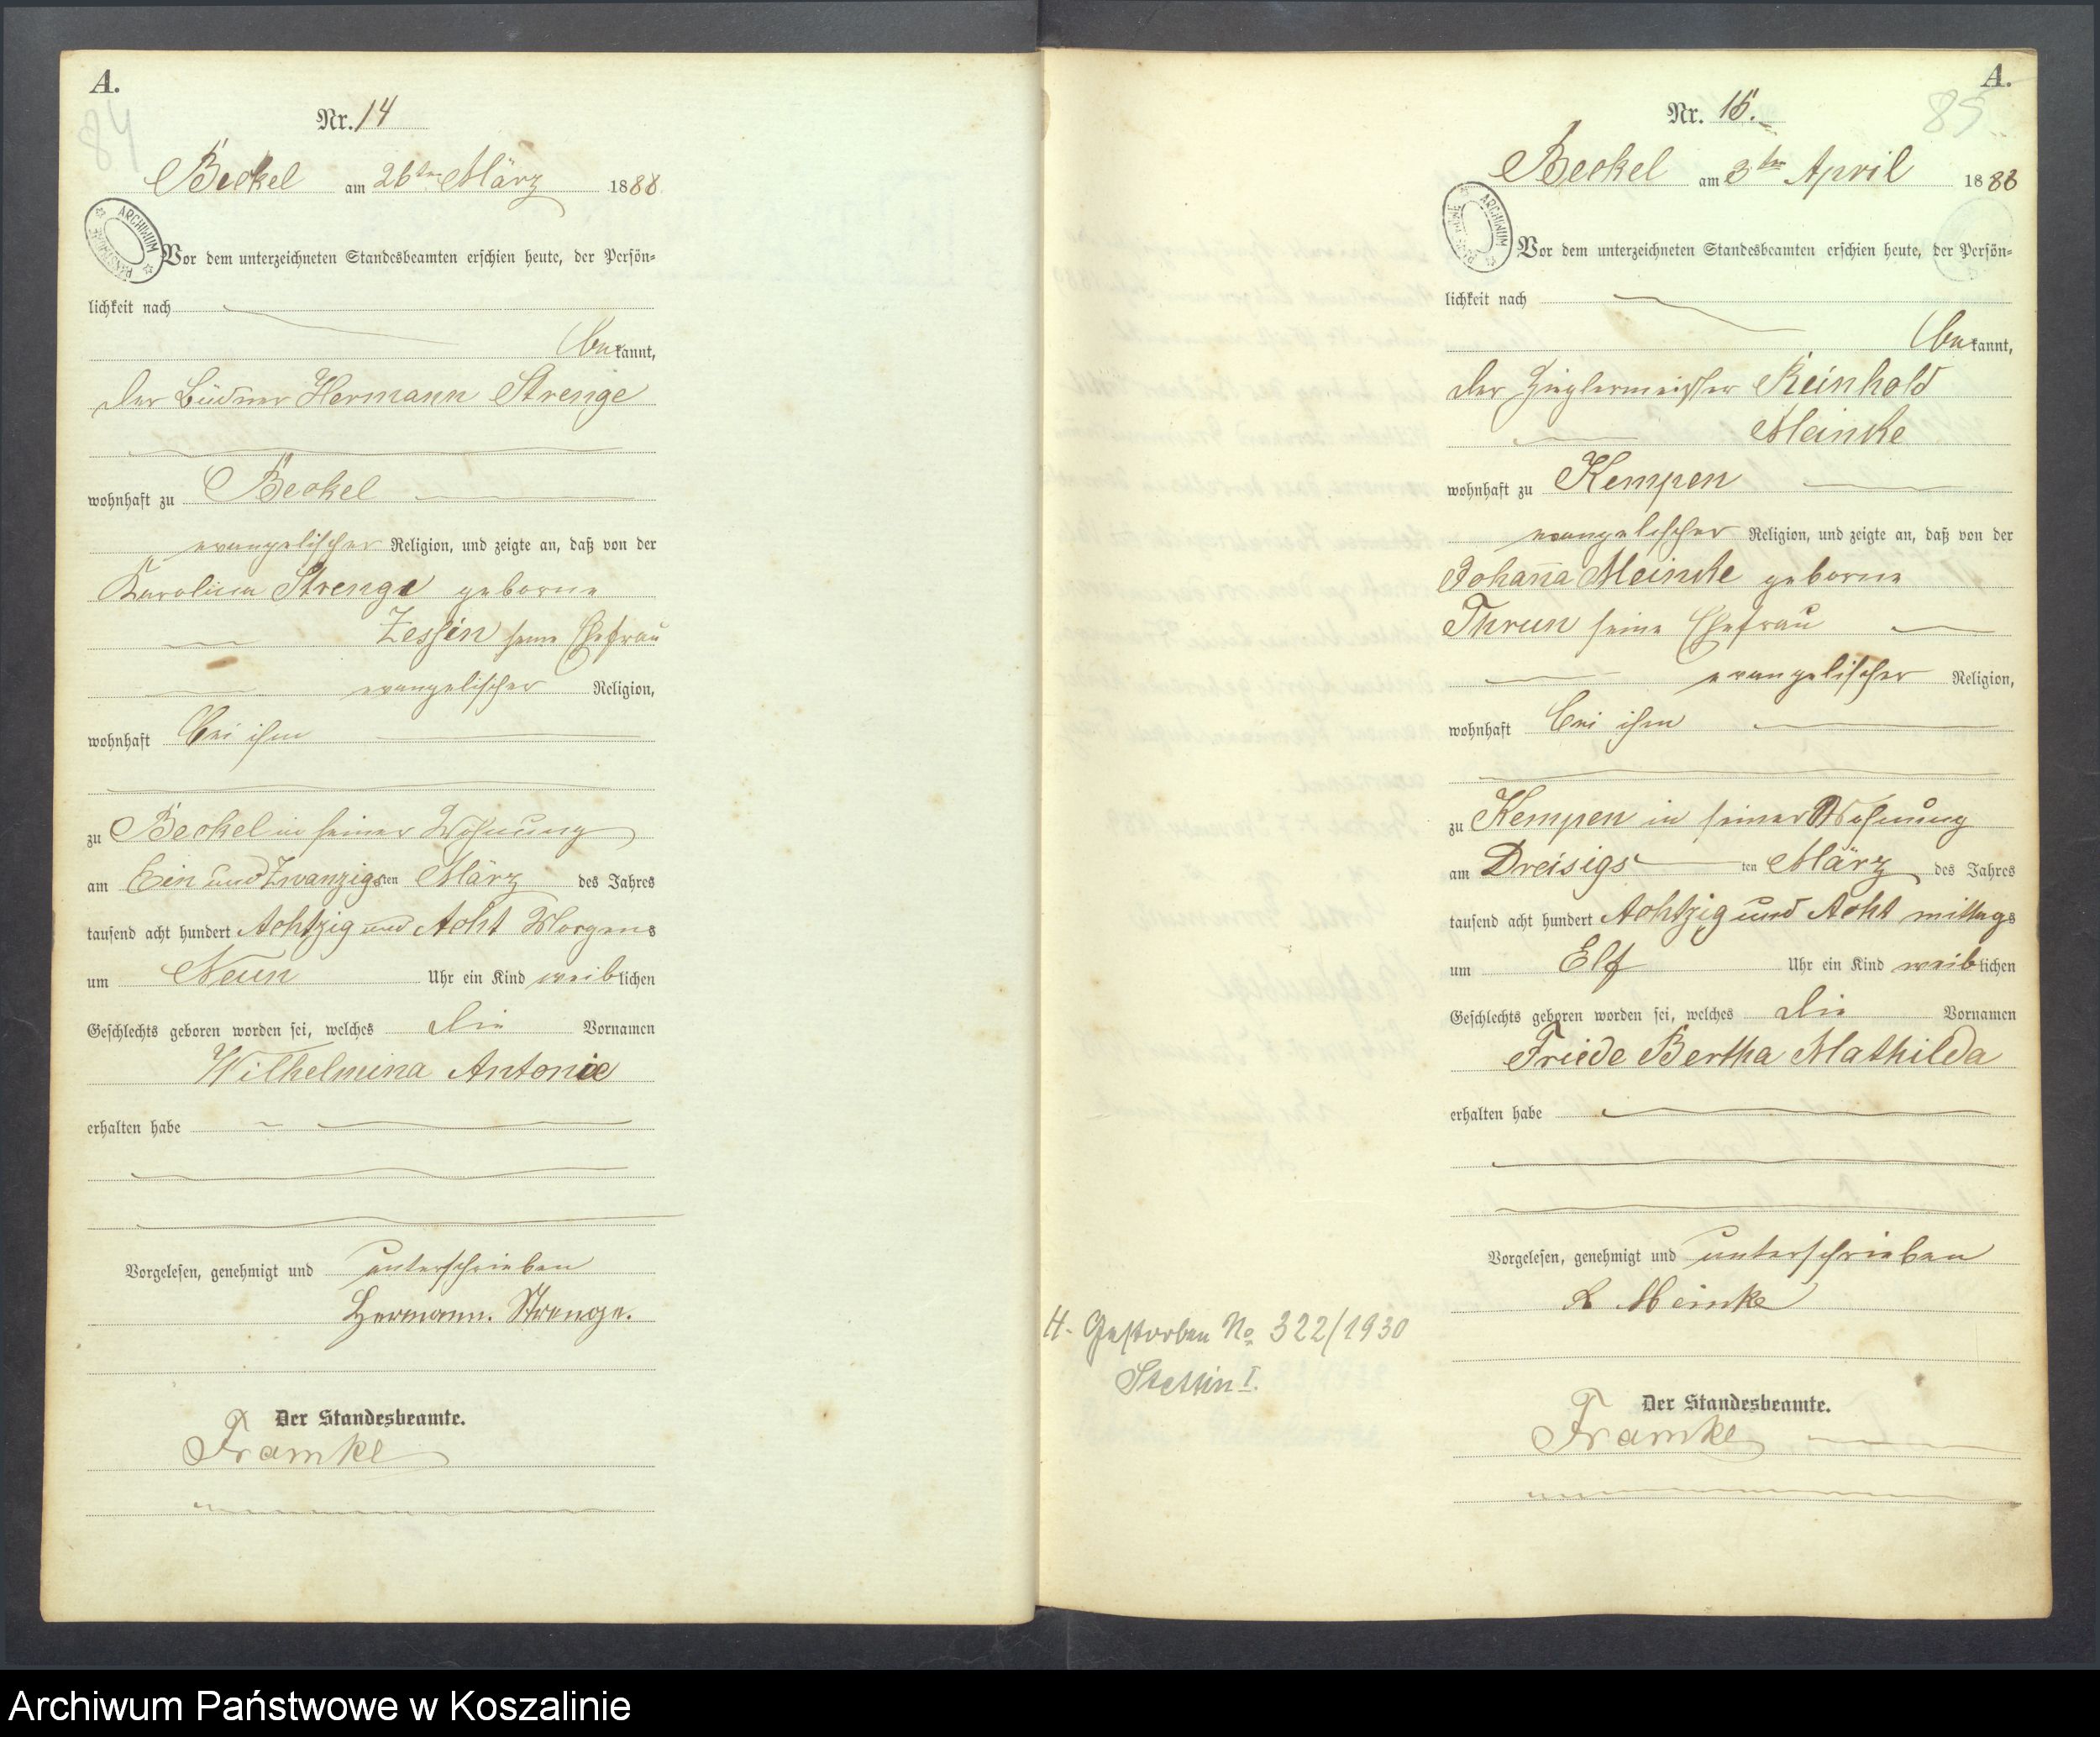 A.
84
Nr. 14
Beckel am 26ten März 1888
ARCHIWUM PAŃSTWOWE
Vor dem unterzeichneten Standesbeamten erschien heute, der Persön-
lichkeit nach
bekannt,
der Büdner Hermann Strenge
wohnhaft zu Beckel
evangelischer Religion, und zeigte an, daß von der
Karolina Strenge geborne
Zessin seine Ehefrau
evangelischer Religion,
wohnhaft bei ihm
zu Beckel in seiner Wohnung
am Ein und Zwanzigsten März des Jahres
tausend acht hundert Achtzig und Acht Morgens
um Neun Uhr ein Kind weiblichen
Geschlechts geboren worden sei, welches die Vornamen
Wilhelmina Antonie
erhalten habe
Vorgelesen, genehmigt und unterschrieben
Hermann. Strenge.
Der Standesbeamte.
Framke
A.
85
Nr. 15.
Beckel am 3ten April 1888
ARCHIWUM PAŃSTWOWE
Vor dem unterzeichneten Standesbeamten erschien heute, der Persön-
lichkeit nach
bekannt,
der Zieglermeister Reinhold
Meinke
wohnhaft zu Kempen
evangelischer Religion, und zeigte an, daß von der
Johanna Meincke geborne
Thrun seine Ehefrau
evangelischer Religion,
wohnhaft bei ihm
zu Kempen in seiner Wohnung
am Dreisigsten März des Jahres
tausend acht hundert Achtzig und Acht mittags
um Elf Uhr ein Kind weiblichen
Geschlechts geboren worden sei, welches die Vornamen
Friede Bertha Mathilda
erhalten habe
Vorgelesen, genehmigt und unterschrieben
R Meinke
H. Gestorben No 322/1930
Stettin I.
Der Standesbeamte.
Framke
Archiwum Państwowe w Koszalinie